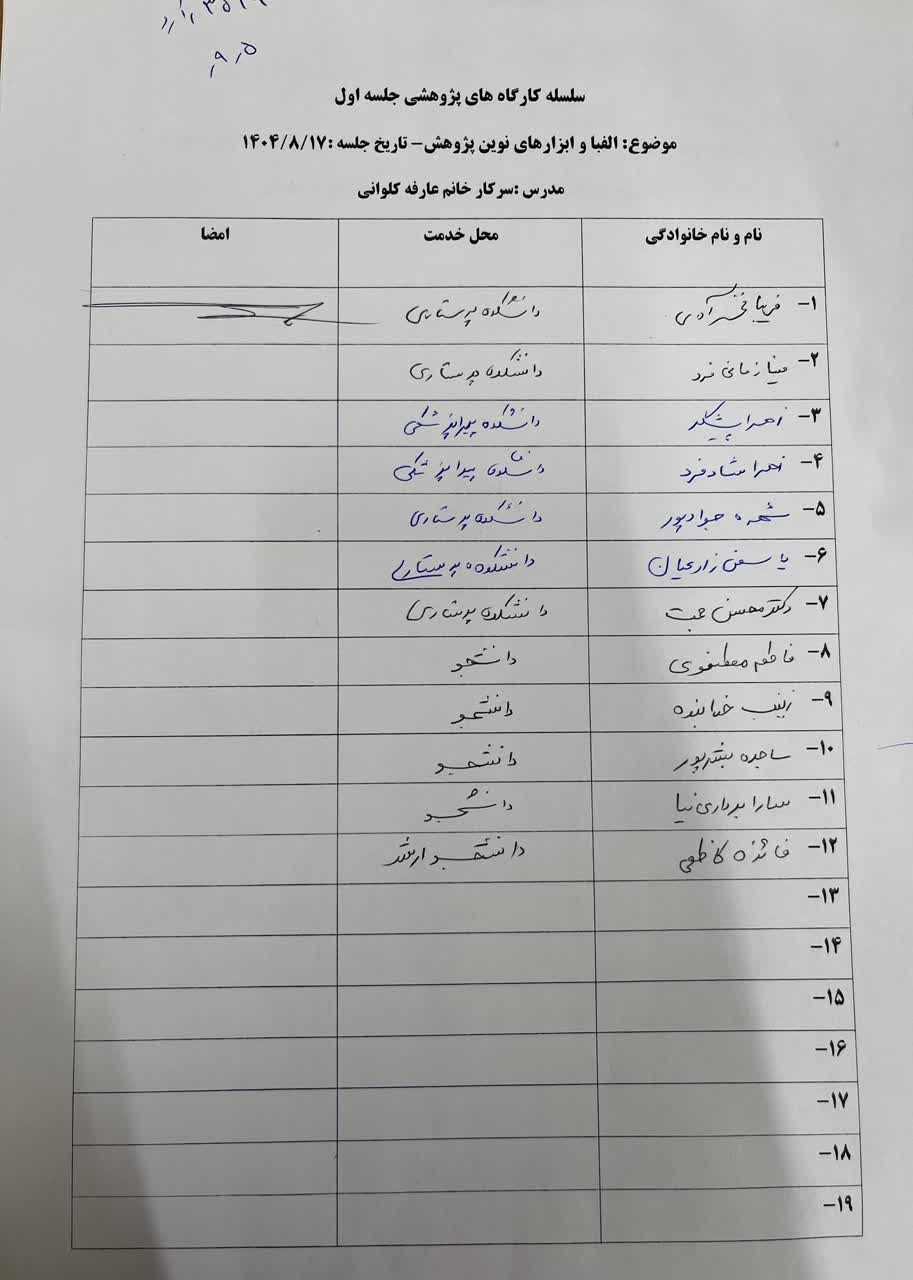 سلسله کارگاه های پژوهشی جلسه اول
موضوع: الفبا و ابزارهای نوین پژوهش- تاریخ جلسه :۱۴۰۴/۸/۱۷
مدرس :سرکار خانم عارفه کلوانی
نام و نام خانوادگی محل خدمت امضا
۱- فریبا دانشکده پرستاری
۲- مینا زمانی فرد دانشکده پرستاری
۳- زهرا پیشکار دانشکده پیراپزشکی
۴- زهرا شاد فرد دانشکده پیراپزشکی
۵- شهره جوادپور دانشکده پرستاری
۶- یاسمن زارعیان دانشکده پرستاری
۷- دکتر محسن محبت دانشکده پرستاری
۸- فاطمه مصطفوی دانشجو
۹- زینب خدابنده دانشجو
۱۰- ساجده دانشجو
۱۱- سارا برداری نیا دانشجو
۱۲- فائزه کاظمی دانشجو ارشد
۱۳-
۱۴-
۱۵-
۱۶-
۱۷-
۱۸-
۱۹-